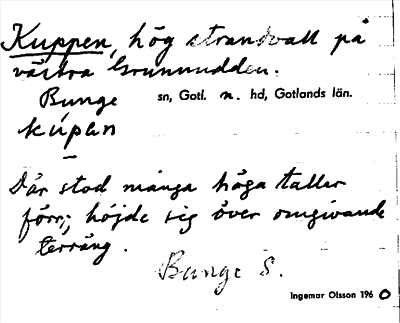 Kuppen, hög strandvall på
västra Grunnudden.
Bunge sn, Gotl. n. hd, Gotlands län.
kúpen
Där stod många höga tallar
förr; höjde sig över omgivande
terräng.
Bunge S.
Ingemar Olsson 1960